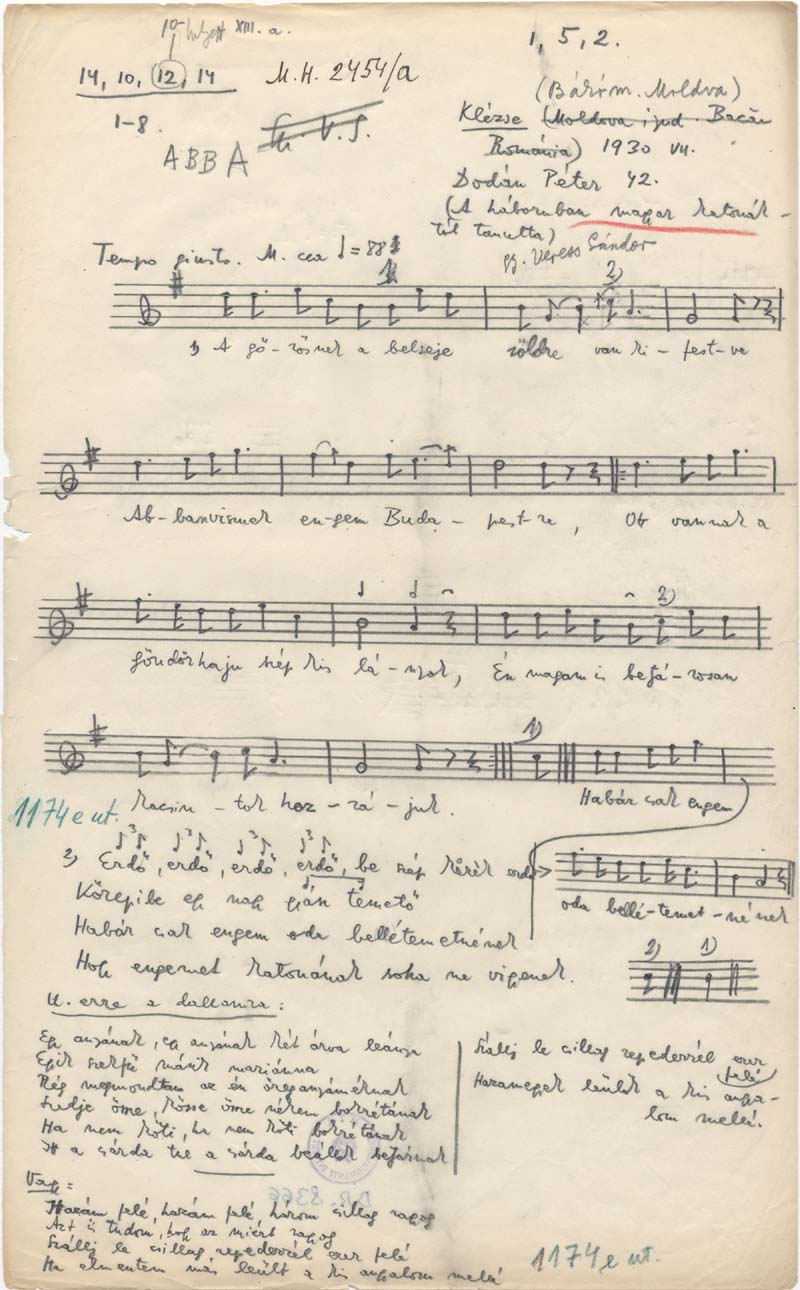 10- helyett XIII. a.
14, 10, 12, 14
M.H. 2454/a
1, 5, 2.
1-8.
ABBA
(Bákóm. Moldva)
Klézse (Moldova i jud. Bacău
Románia) 1930 VII.
Dodán Péter 42.
(A háboruban magyar katonák-
tól tanulta)
gy. Veress Sándor
Tempo giusto. M. cca = 88
1) A gő-zösnek a belseje zöldre van ki-fest-ve
2)
Ab-banvisznek en-gem Buda-pest-re, Ott vannak a
göndörhaju szép kis lá-nyok, Én magam is betyá-rosan
2)
kacsin-tok hoz-zá-juk.
1)
Habár csak engem
oda bellé-temet-nének
2) 1)
1174 e ut.
3 3 3 3
2) Erdő, erdő, erdő, erdő, be szép kerek erdő
Közepibe egy nagy gyász temető
Habár csak engem oda bellétemetnének
Hogy engemet katonának soha ne vigyenek.
U. erre a dallamra:
Egy anyának, egy anyának két árva leánya
Egyik szekfű másik mariánna
Rég megmondtam az én öreganyáméknak
Szedje öme, kösse öme nékem bokrétának
Ha nem köti, ha nem köti bokrétának
Itt a csárda be a csárda beállok betyárnak
Szállj le csillag repedezzél ezer
felé
Hazamegyek leülök a kis angya-
lom mellé.
Vagy:
Hazám felé, hazám felé, három csillag ragyog
Azt is tudom, hogy az miért ragyog
Szállj le csillag, repedezzél ezer felé
Ha elmentem már leült a kis angyalom mellé
B.R. 8366
1174 e ut.